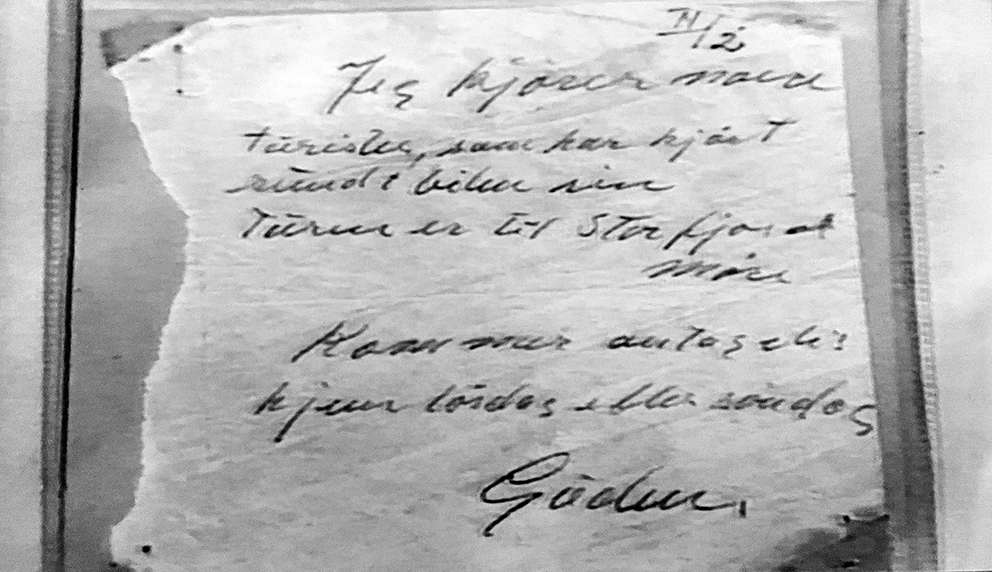 Jeg kjörer noen
türister, som har kjört
ründt bilen sin
Türen er til Storfjord
möre
Kommer antagelig
hjem lördag eller söndag